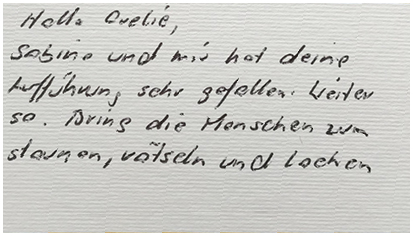 Hallo Orelié,
Sabine und mir hat deine
Aufführung sehr gefallen. Weiter
so. Bring die Menschen zum
staunen, rätseln und lachen